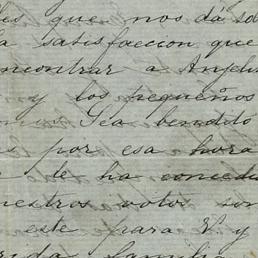 que nos dá
satisfaccion que
encontrar a Anjel
y los pequeños
Sea bendito
por esa hora
le ha conced
nuestros votos son
este para V y
familia